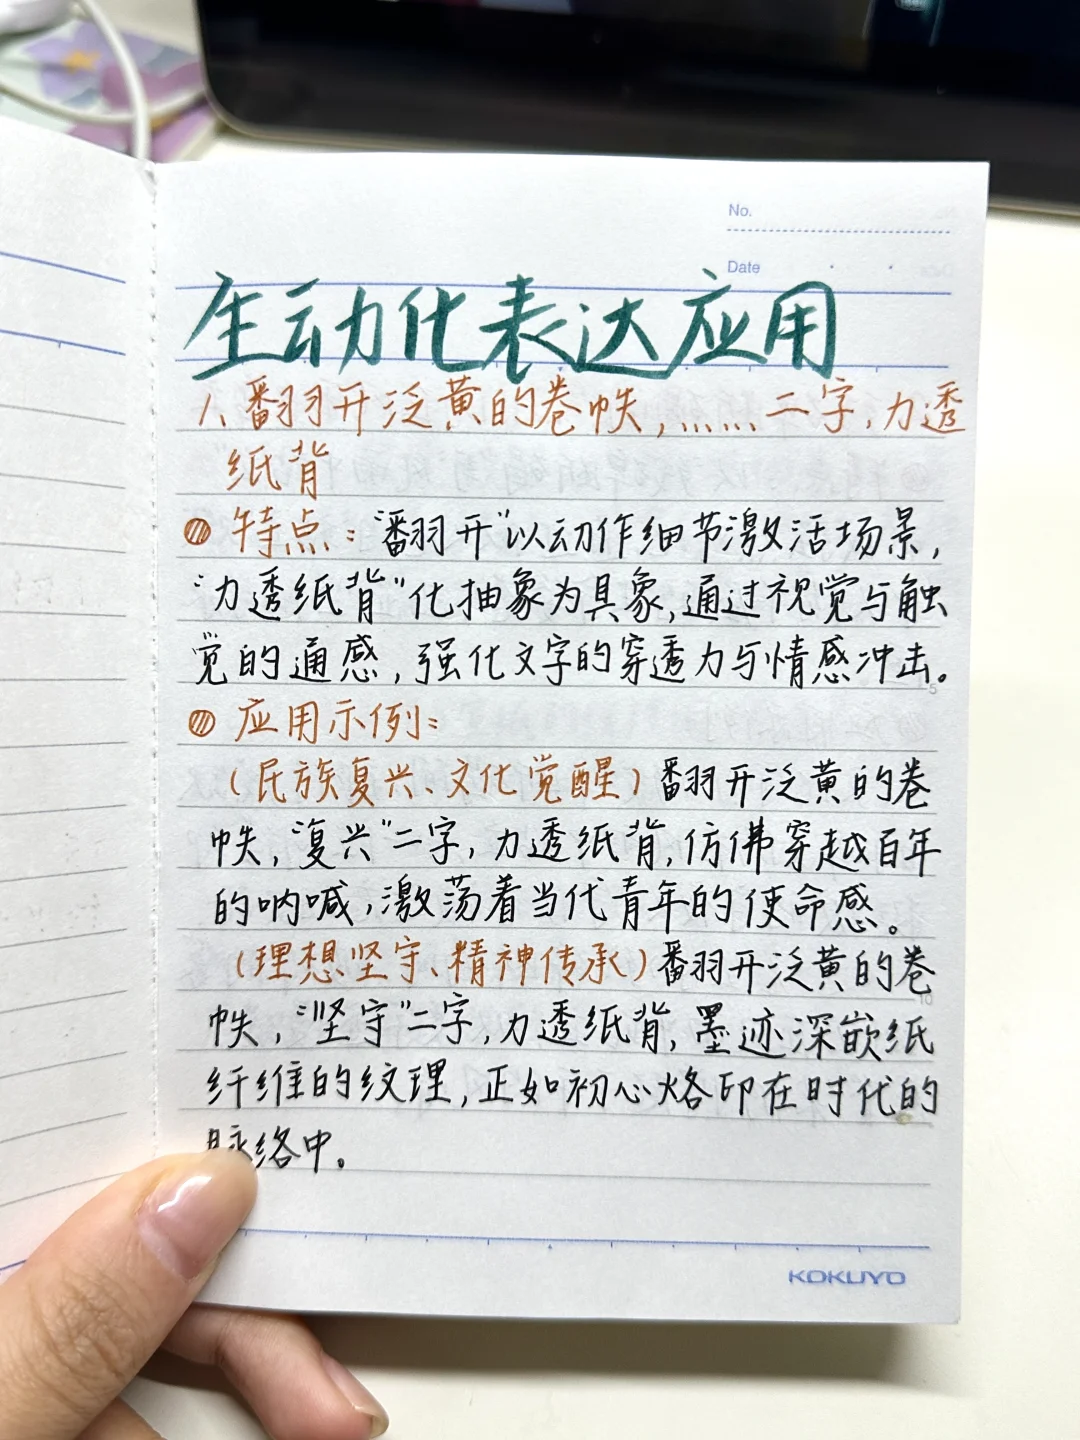 No.
Date
生动化表达应用
1、翻开泛黄的卷帙,灬灬二字,力透
纸背
特点:“翻开”以动作细节激活场景,
“力透纸背”化抽象为具象,通过视觉与触
觉的通感,强化文字的穿透力与情感冲击。
5
应用示例:
(民族复兴、文化觉醒)翻开泛黄的卷
帙,“复兴”二字,力透纸背,仿佛穿越百年
的呐喊,激荡着当代青年的使命感。
(理想坚守、精神传承)翻开泛黄的卷
10
帙,“坚守”二字,力透纸背,墨迹深嵌纸
纤维的纹理,正如初心烙印在时代的
脉络中。
KOKUYO